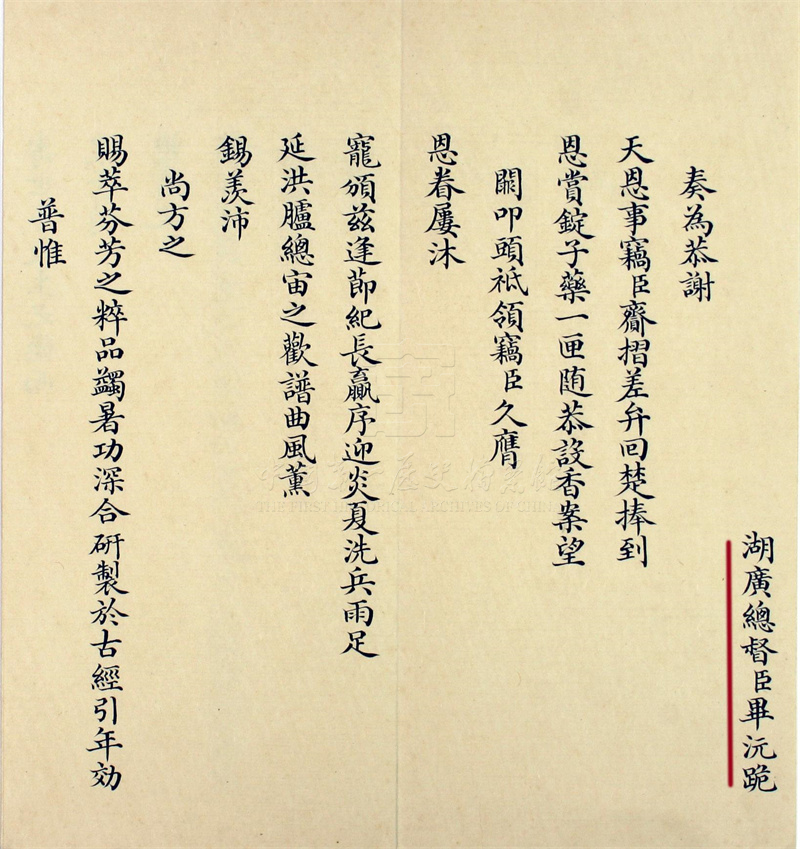 湖廣總督臣畢沅跪
奏為恭謝
天恩事竊臣齎摺差弁回楚捧到
恩賞錠子藥一匣随恭設香案望
闕叩頭祗領竊臣久膺
恩眷屢沐
寵頒兹逢節紀長贏序迎炎夏洗兵雨足
延洪臚總宙之歡譜曲風薰
錫羨沛
尚方之
賜萃芬芳之粹品蠲暑功深合研製於古經引年効
普惟
THE FIRST HISTORICAL ARCHIVES OF CHINA